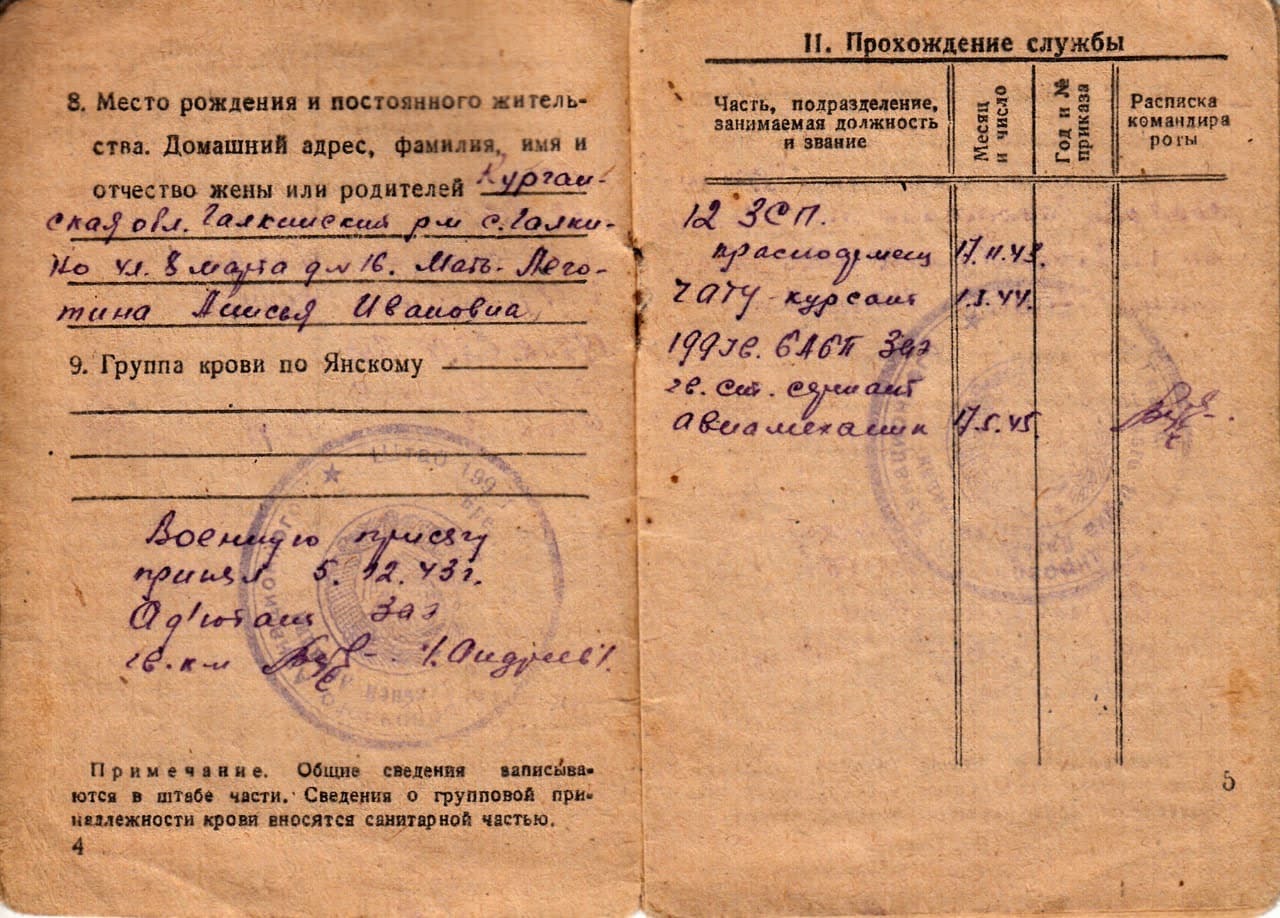 8. Место рождения и постоянного житель-
ства. Домашний адрес, фамилия, имя и
отчество жены или родителей Курган-
ская обл. Галкинский р-н с. Галки-
но ул. 8 марта дм 16. Мать - Лего-
тина Анисья Ивановна
9. Группа крови по Янскому
Военную присягу
принял 5. 12. 43 г.
Ад'ютант 3 аэ
гв. к-н /Андреев/.
Примечание. Общие сведения записыва-
ются в штабе части. Сведения о групповой при-
надлежности крови вносятся санитарной частью.
4
II. Прохождение службы
Часть, подразделение,
занимаемая должность
и звание
Месяц
и число
Год и №
приказа
Расписка
командира
роты
12 ЗСП.
красноармеец 17.11.43.
ЧАТУ - курсант 1.5.44.
199 гв. БАП 3 аэ
гв. ст. сержант
авиамеханик 17.5.45
5